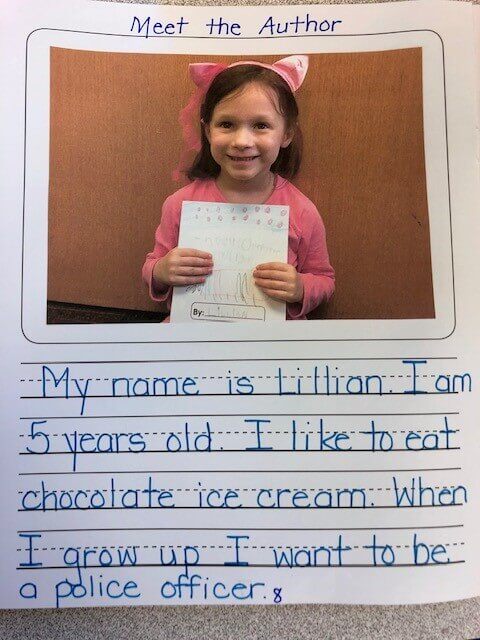 Meet the Author
By: Lillian
My name is Lillian. I am
5 years old. I like to eat
chocolate ice cream. When
I grow up I want to be
a police officer. 8